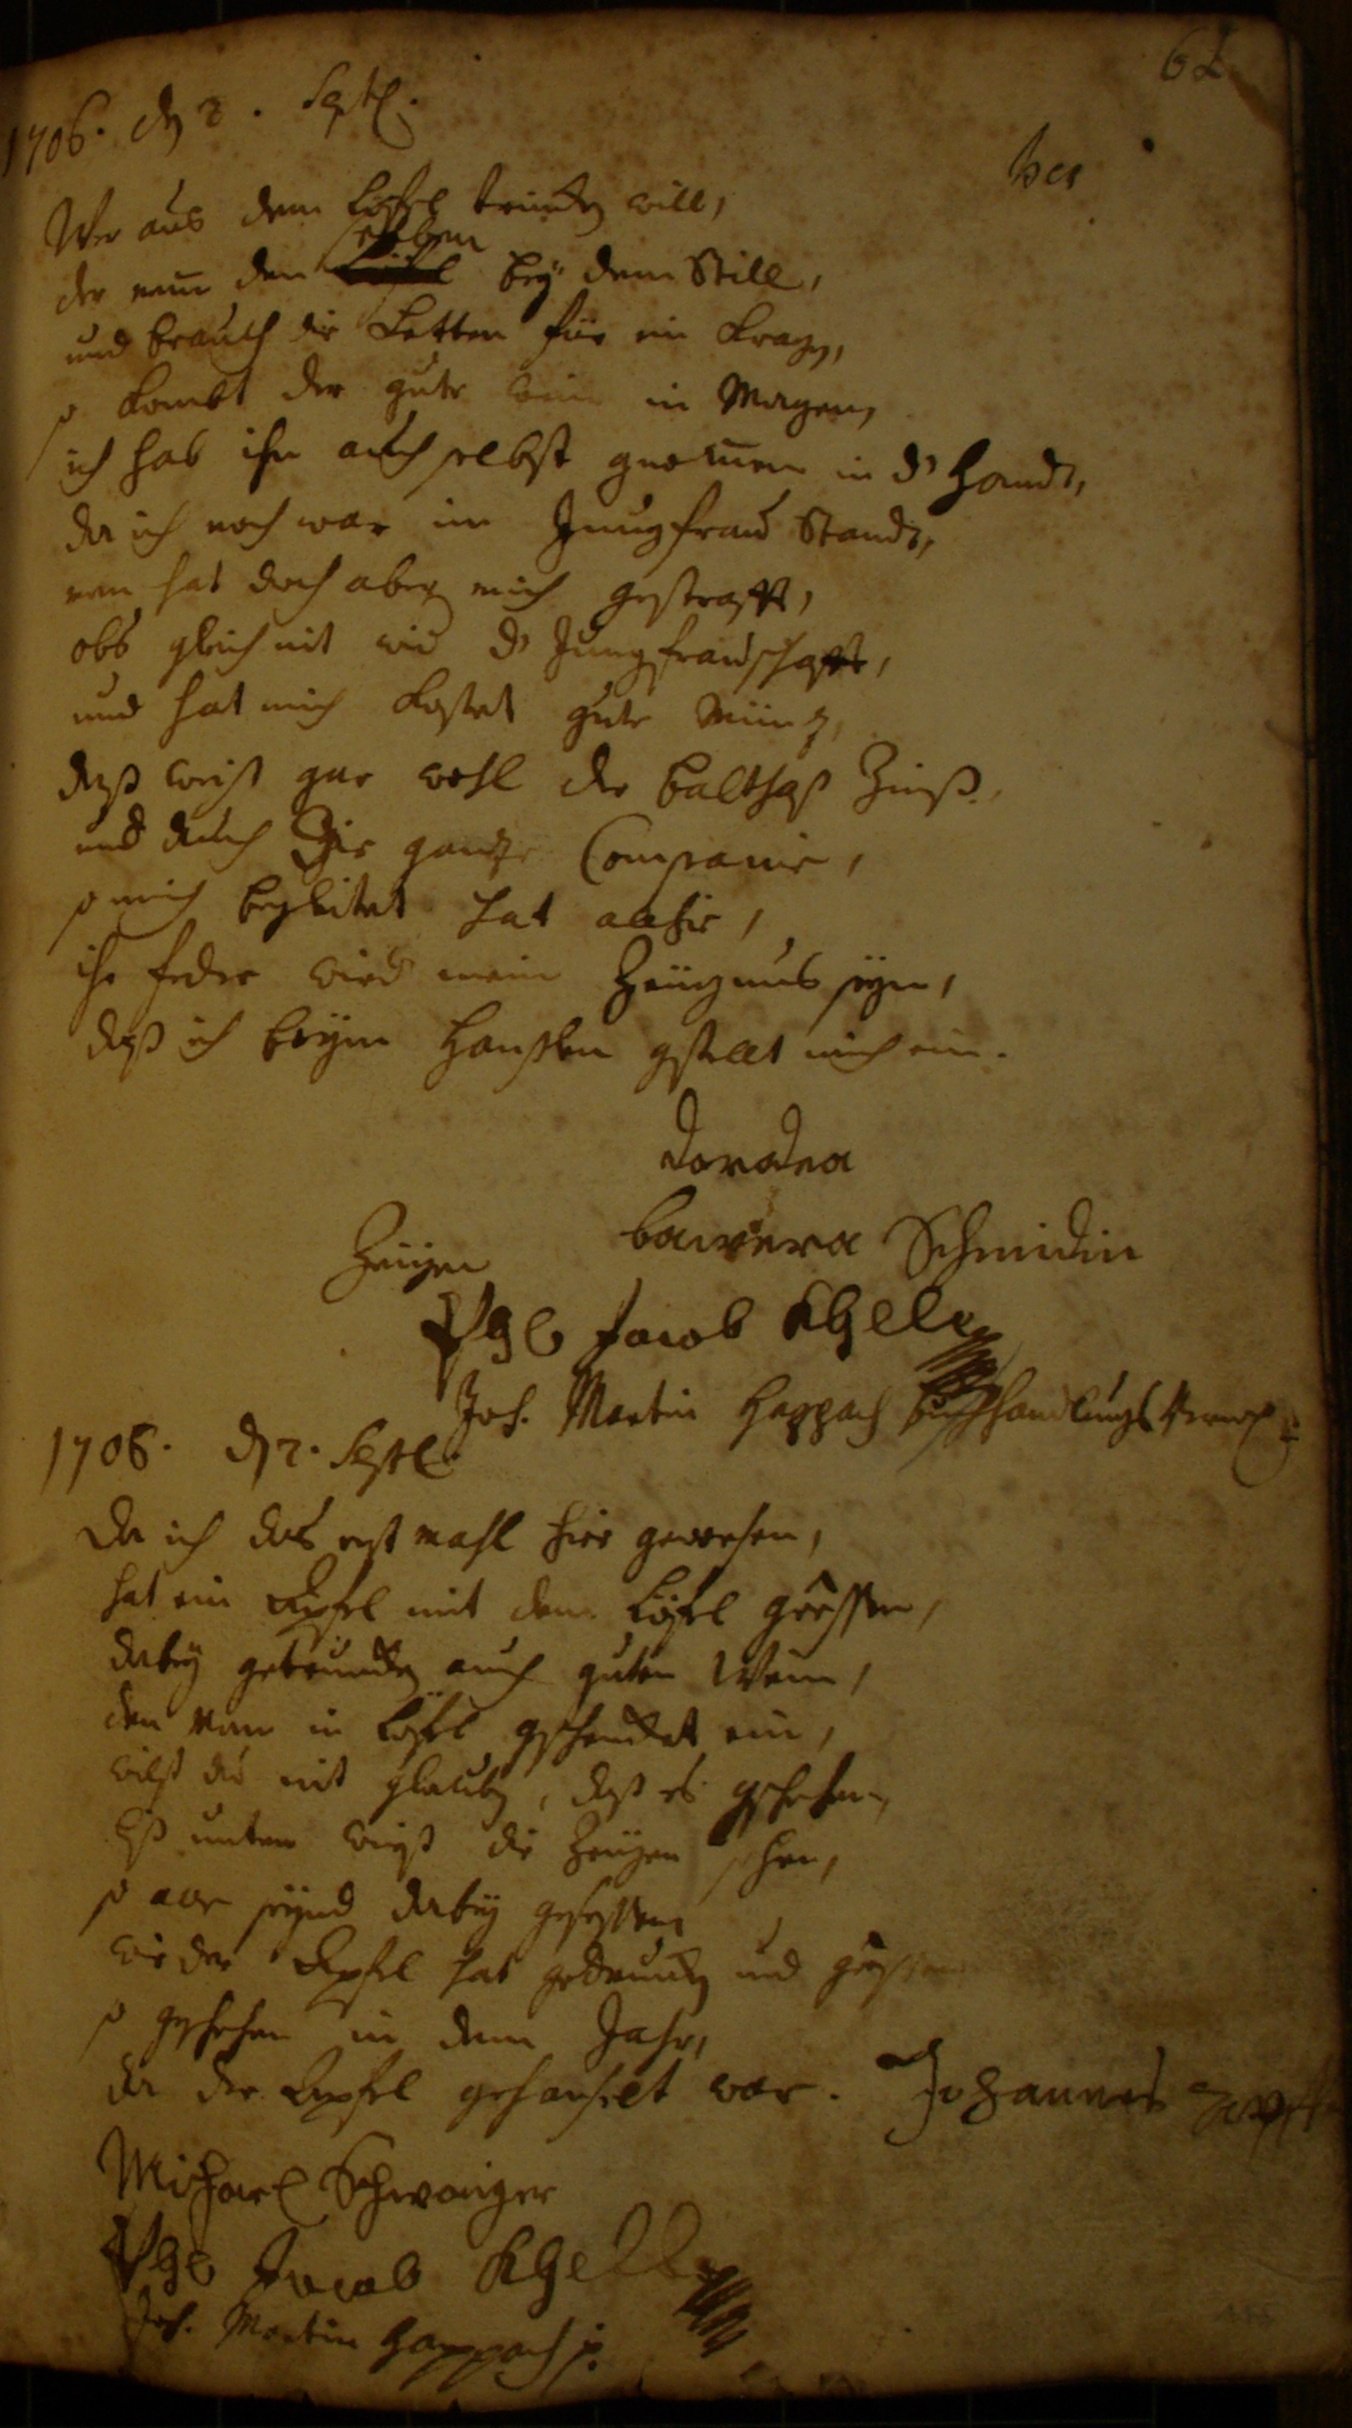 62
1706. dẽ 2. Septĕ.
her
Wer aus dem Löffel trinckẽ will,
der nem den selben bey dem Still,
und brauch die Ketten für ein Kragẽ,
so kombt der gute wein in Magen,
ich hab ihn auch selbst gnommen in d' Handt,
da ich noch war im Jungfrau Standt,
man hat doch aber mich gestrafft,
obs gleich nit wid d' Jungfrauschafft,
und hat mich kostet gute Müntz,
daß weist gar wohl der Balthas Zinß.
und auch Die gantze Compänie,
so mich begleitet hat alhie,
ihr feder wird mein Zeugnus seyn,
daß ich beym Hanslen gstellt mich ein.
doradea
barvara Schmidin
Zeugen
Jacob Khelle
Joh. Martin Happach buchhandlungs
1706. dẽ 2. Septe.
Da ich das erst mahl hier gewesen,
hat ein Apfel mit dem Löfel gessen,
dabey getrunckẽ auch guten Wein,
den man in Löffel gschencket ein,
wilst du nit glaubẽ, daß es gschehen,
unten wirst die Zeugen sehen,
so alle seynd dabey gesessen
wie der Apfel hat gedrunckẽ und gessen
so geschehen in dem Jahr,
da der Apfel gehanselt war. Johannes
Michael Schwaiger
Jacob Khelle
Joh. Martin Happach